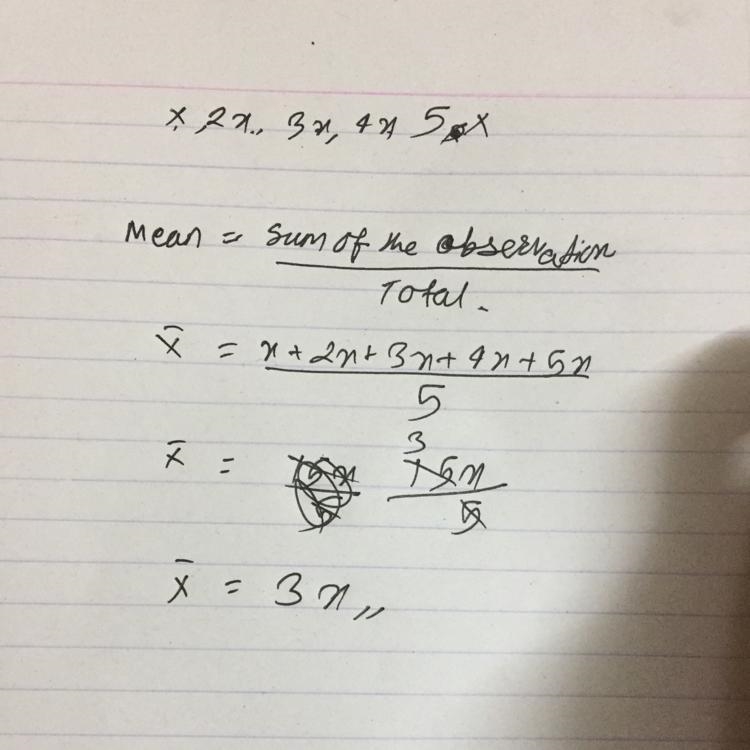 x, 2x, 3x, 4x, 5x
Mean = Sum of the observation
Total.
x̄ = x + 2x + 3x + 4x + 5x
5
3
x̄ = 15x
5
x̄ = 3x,,